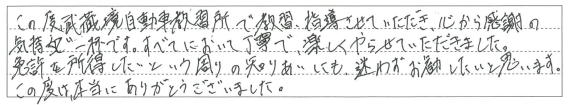 この度武蔵境自動車教習所で教習、指導させていただき、心から感謝の
気持で一杯です。すべてにおいて丁寧で、楽しくやらせていただきました。
免許を所得したいという周りの知りあいにも、迷わずお勧したいと思います。
この度は本当にありがとうございました。